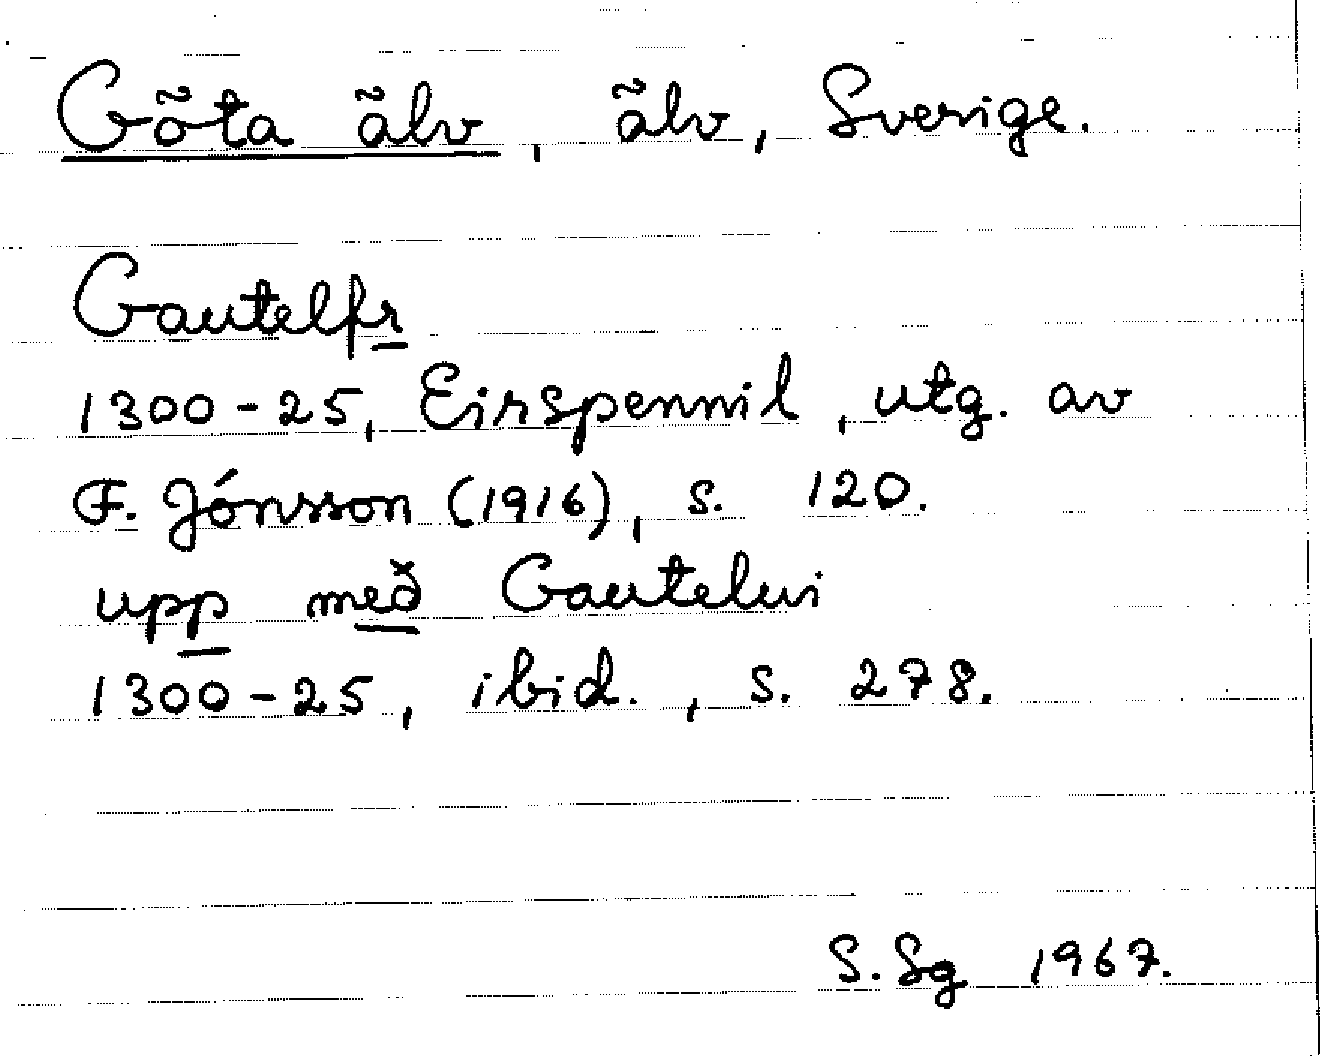 Göta älv, älv, Sverige.
Gautelfr
1300-25, Eirspennil, utg. av
F. Jónsson (1916), s. 120.
upp með Gautelui
1300-25, ibid., s. 278.
S. Sg 1967.